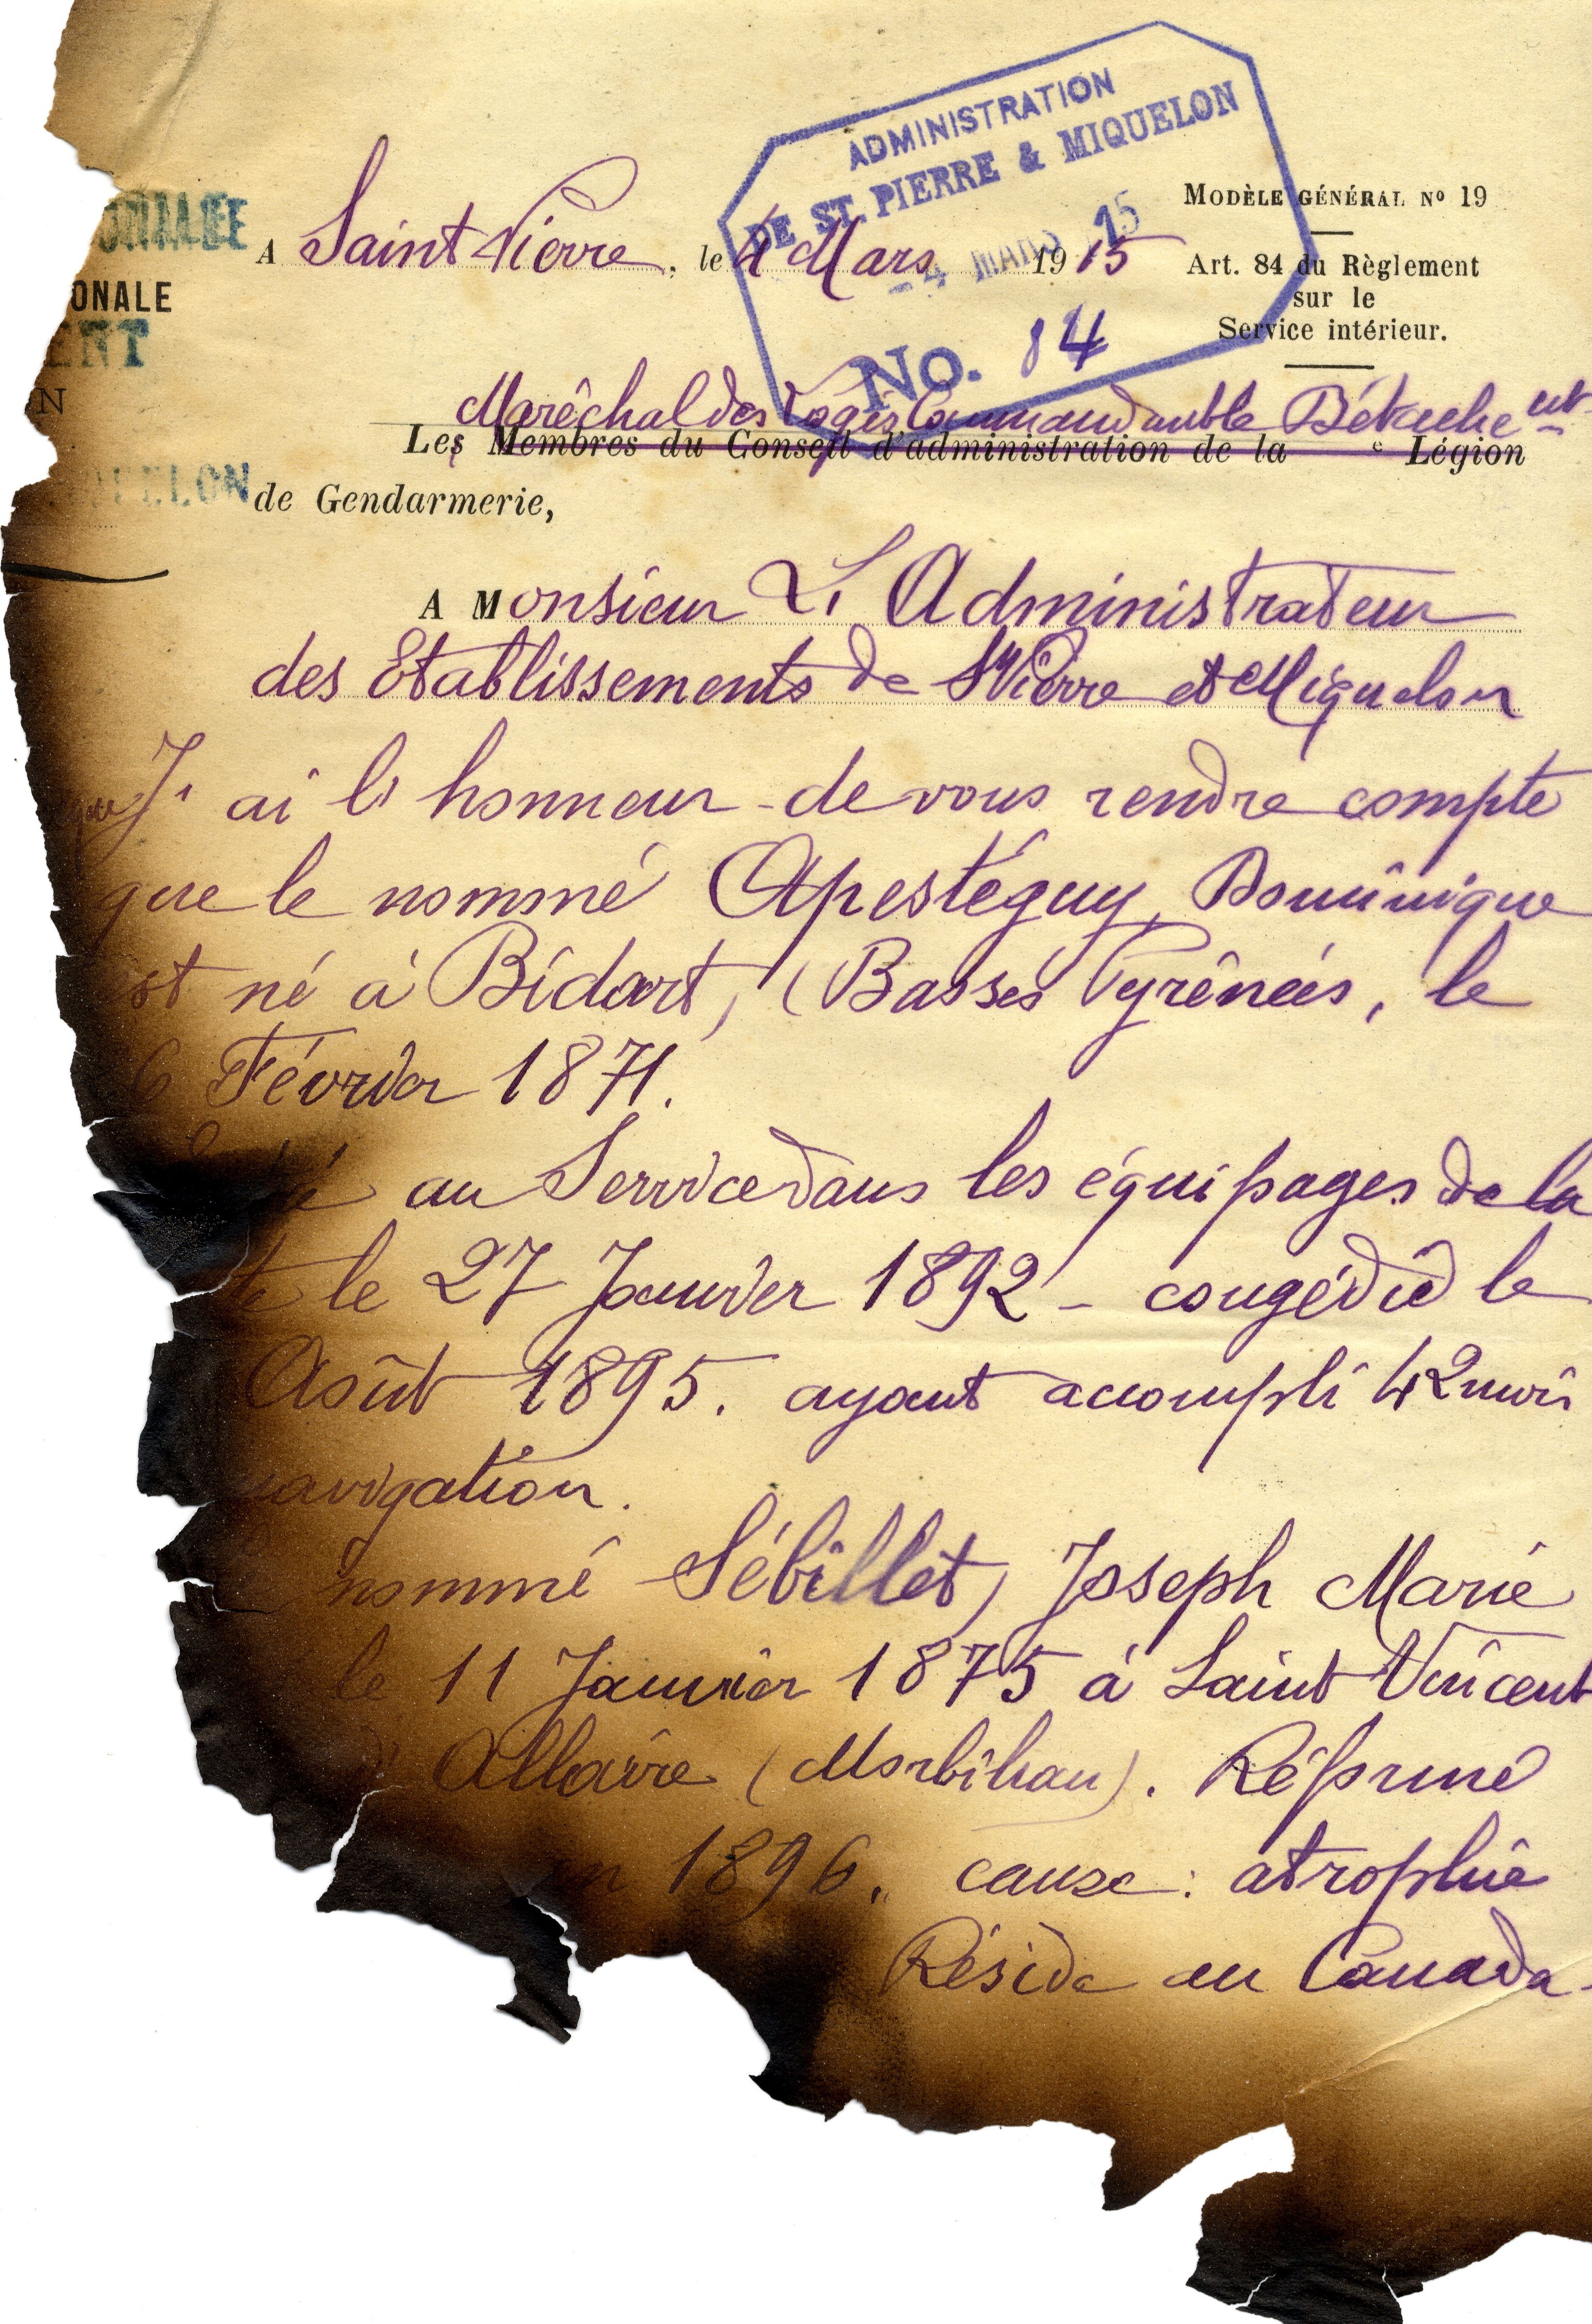 ADMINISTRATION
DE ST. PIERRE & MIQUELON
-4 MARS 15
No. 84
MODÈLE GÉNÉRAL No 19
Art. 84 du Règlement
sur le
Service intérieur.
ONALE
ENT
N
ELON
A Saint Pierre, le 4 Mars 1915
Maréchal des Logis Commandant le Détachent
Les Membres du Conseil d'administration de la e Légion
de Gendarmerie,
A Monsieur L'Administrateur
des Etablissements de St Pierre et Miquelon
J'ai l'honneur de vous rendre compte
que le nommé Apestéguy, Dominique
est né à Bidart, (Basses Pyrénées, le
6 Février 1871.
au Service dans les équipages de la
le 27 Janvier 1892 - congédié le
Août 1895. ayant accompli 42 mois
navigation.
nommé Sébillet, Joseph Marie
le 11 Janvier 1875 à Saint Vincent
Allaire (Morbihan). Réformé
en 1896. cause : atrophie
Réside au Canada.